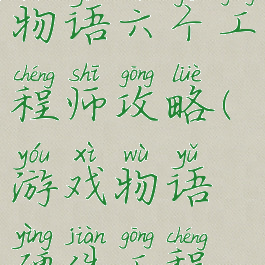 物语六个工
chéng shī gōng lüè
程师攻略(
yóu xì wù yǔ
游戏物语
yìng jiàn gōng chéng
硬件工程